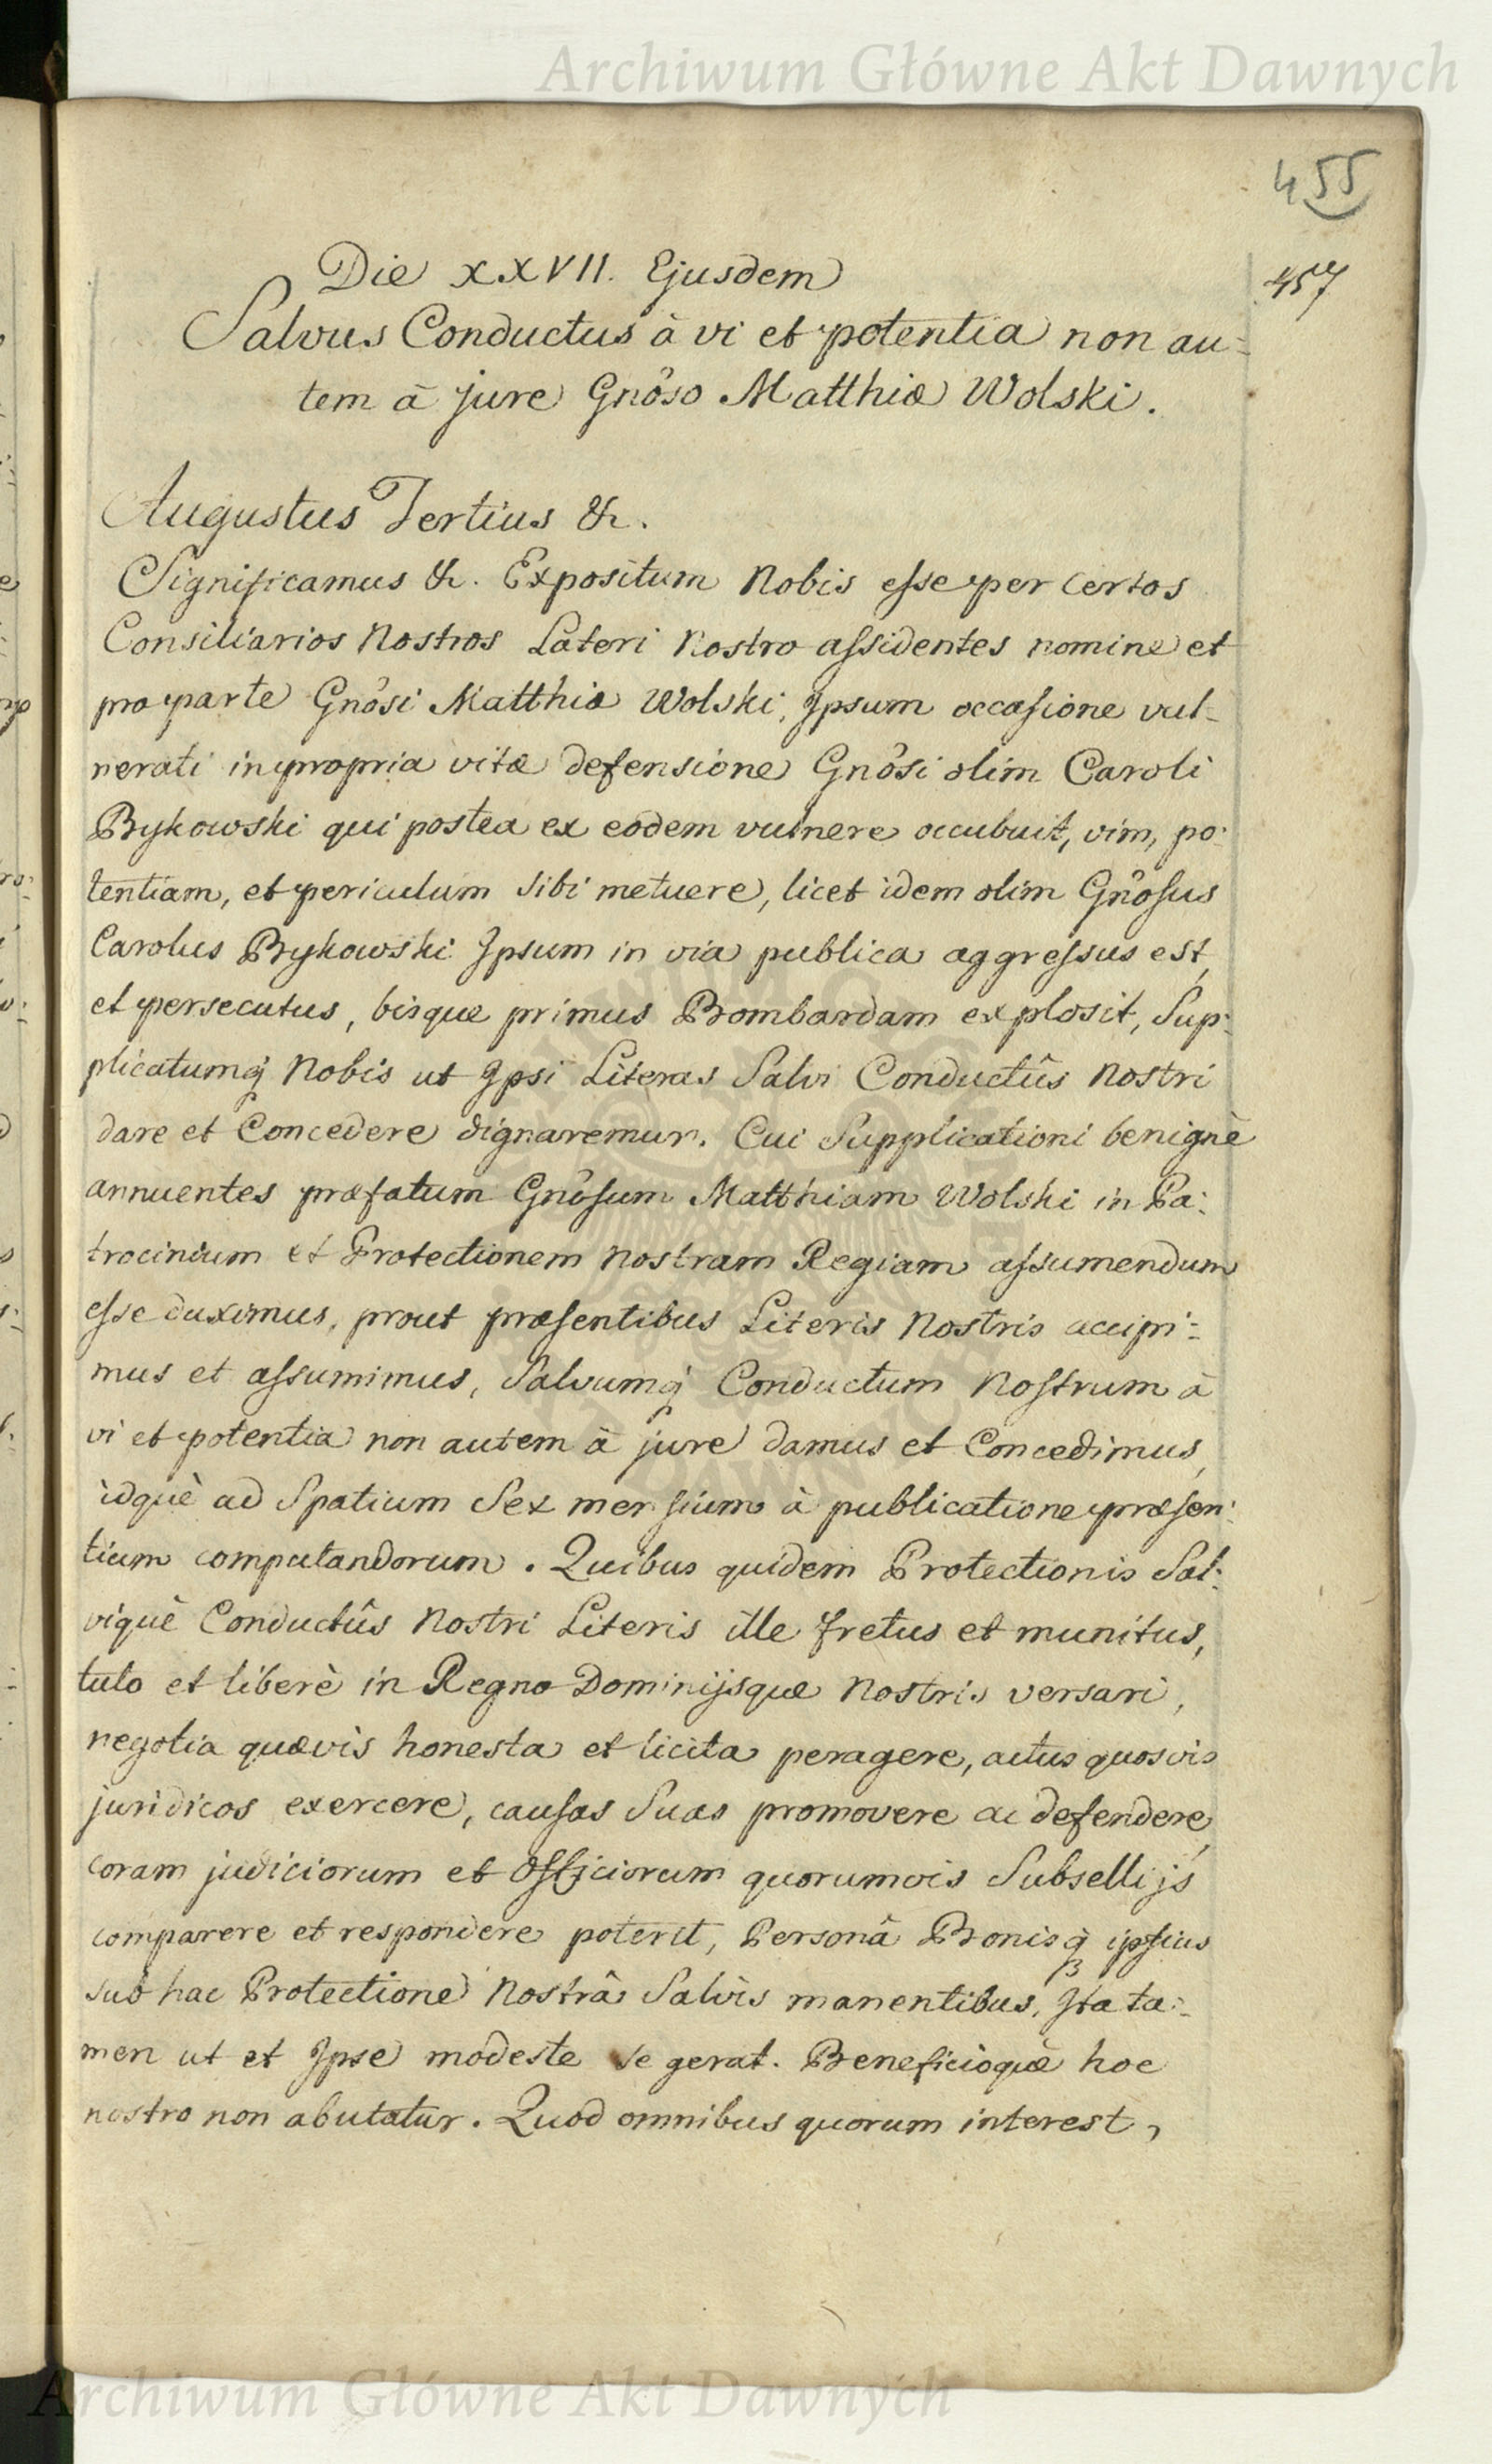 Archiwum Główne Akt Dawnych
455
457
Die XXVII. Ejusdem
Salvus Conductus à vi et potentia non au=
tem à jure Gnôso Matthiæ Wolski.
Augustus Tertius &c.
Significamus &c. Expositum Nobis esse per certos
Consiliarios Nostros Lateri Nostro assidentes nomine et
pro parte Gnôsi Matthiæ Wolski, Ipsum occasione vul=
nerati in propria vitæ defensione Gnôsi olim Caroli
Bykowski qui postea ex eodem vulnere occubuit, vim, po:
tentiam, et periculum sibi metuere, licet idem olim Gnôsus
Carolus Bykowski Ipsum in via publica aggressus est,
et persecutus, bisque primus Bombardam explosit, Sup:
plicatumq́ Nobis ut Ipsi Literas Salvi Conductûs Nostri
dare et Concedere dignaremur. Cui Supplicationi benignè
annuentes præfatum Gnôsum Matthiam Wolski in Pa:
trocinium et Protectionem Nostram Regiam assumendum
esse duximus, prout præsentibus Literis Nostris accipi:
mus et assumimus, Salvumq́ Conductum Nostrum à
vi et potentia non autem à jure damus et Concedimus,
idquè ad Spatium Sex mensium à publicatione præsen:
tium computandorum. Quibus quidem Protectionis Sal:
viquè Conductûs Nostri Literis ille fretus et munitus,
tuto et liberè in Regno Dominijsque Nostris versari,
negotia quævis honesta et licita peragere, actus quosvis
juridicos exercere, causas Suas promovere ac defendere,
coram judiciorum et Officiorum quorumvis Subsellijs
comparere et respondere poterit, Personâ Bonisq́ ipsius
sub hac Protectione Nostrâ Salvis manentibus, Ita ta:
men ut et Ipse modeste se gerat. Beneficioquè hoc
nostro non abutatur. Quod omnibus quorum interest,
Archiwum Główne Akt Dawnych